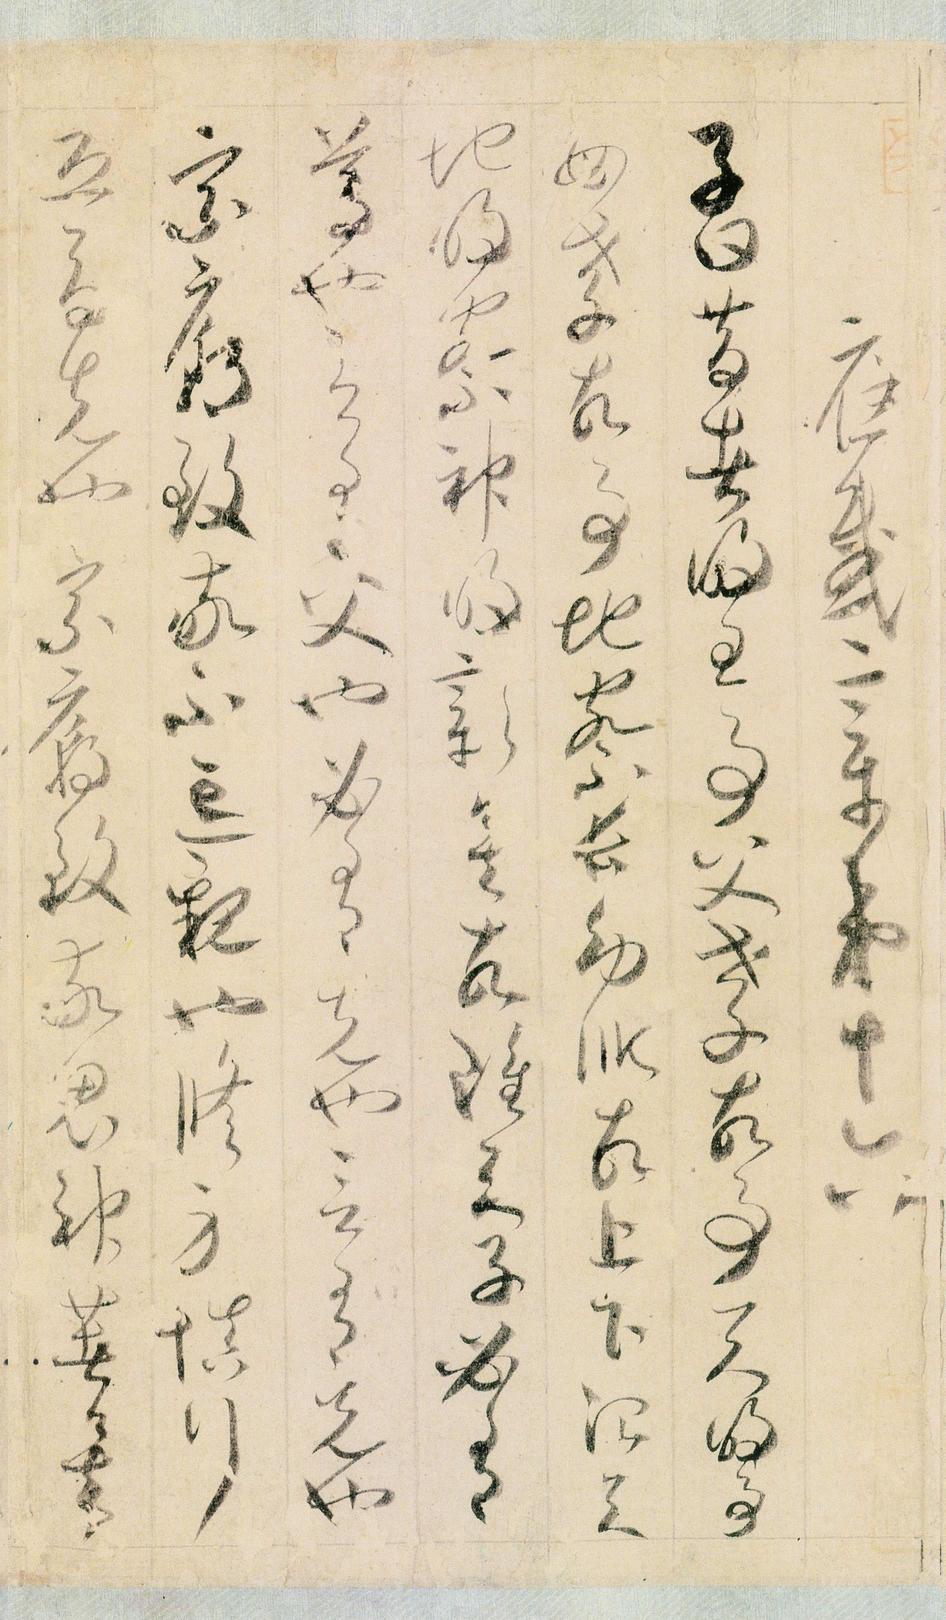 應感章第十六
子曰昔者明王事父孝故事天明事
母孝故事地察長幼順故上下治天
地明察神明彰矣故雖天子必有
尊也言有父也必有先也言有兄也
宗廟致敬不忘親也脩身慎行
恐辱先也宗廟致敬鬼神著矣孝